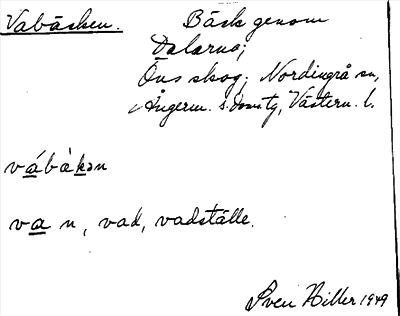 Vabäcken. Bäck genom
Dalarna;
Öns skog; Nordingrå sn,
Ångerm. s. doms tg, Västern. l.
vábàkən
va n, vad, vadställe.
Sven Hiller 1949